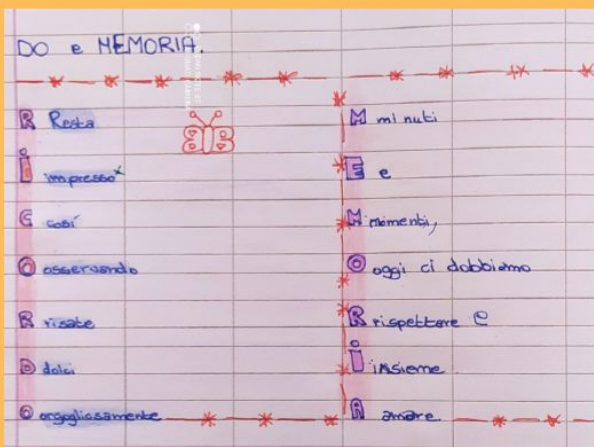 DO e MEMORIA.
R Resta
i impresso
C così
O osservando
R risate
D dolci
O orgogliosamente
M minuti
E e
M momenti,
O oggi ci dobbiamo
R rispettare e
i insieme
A amare